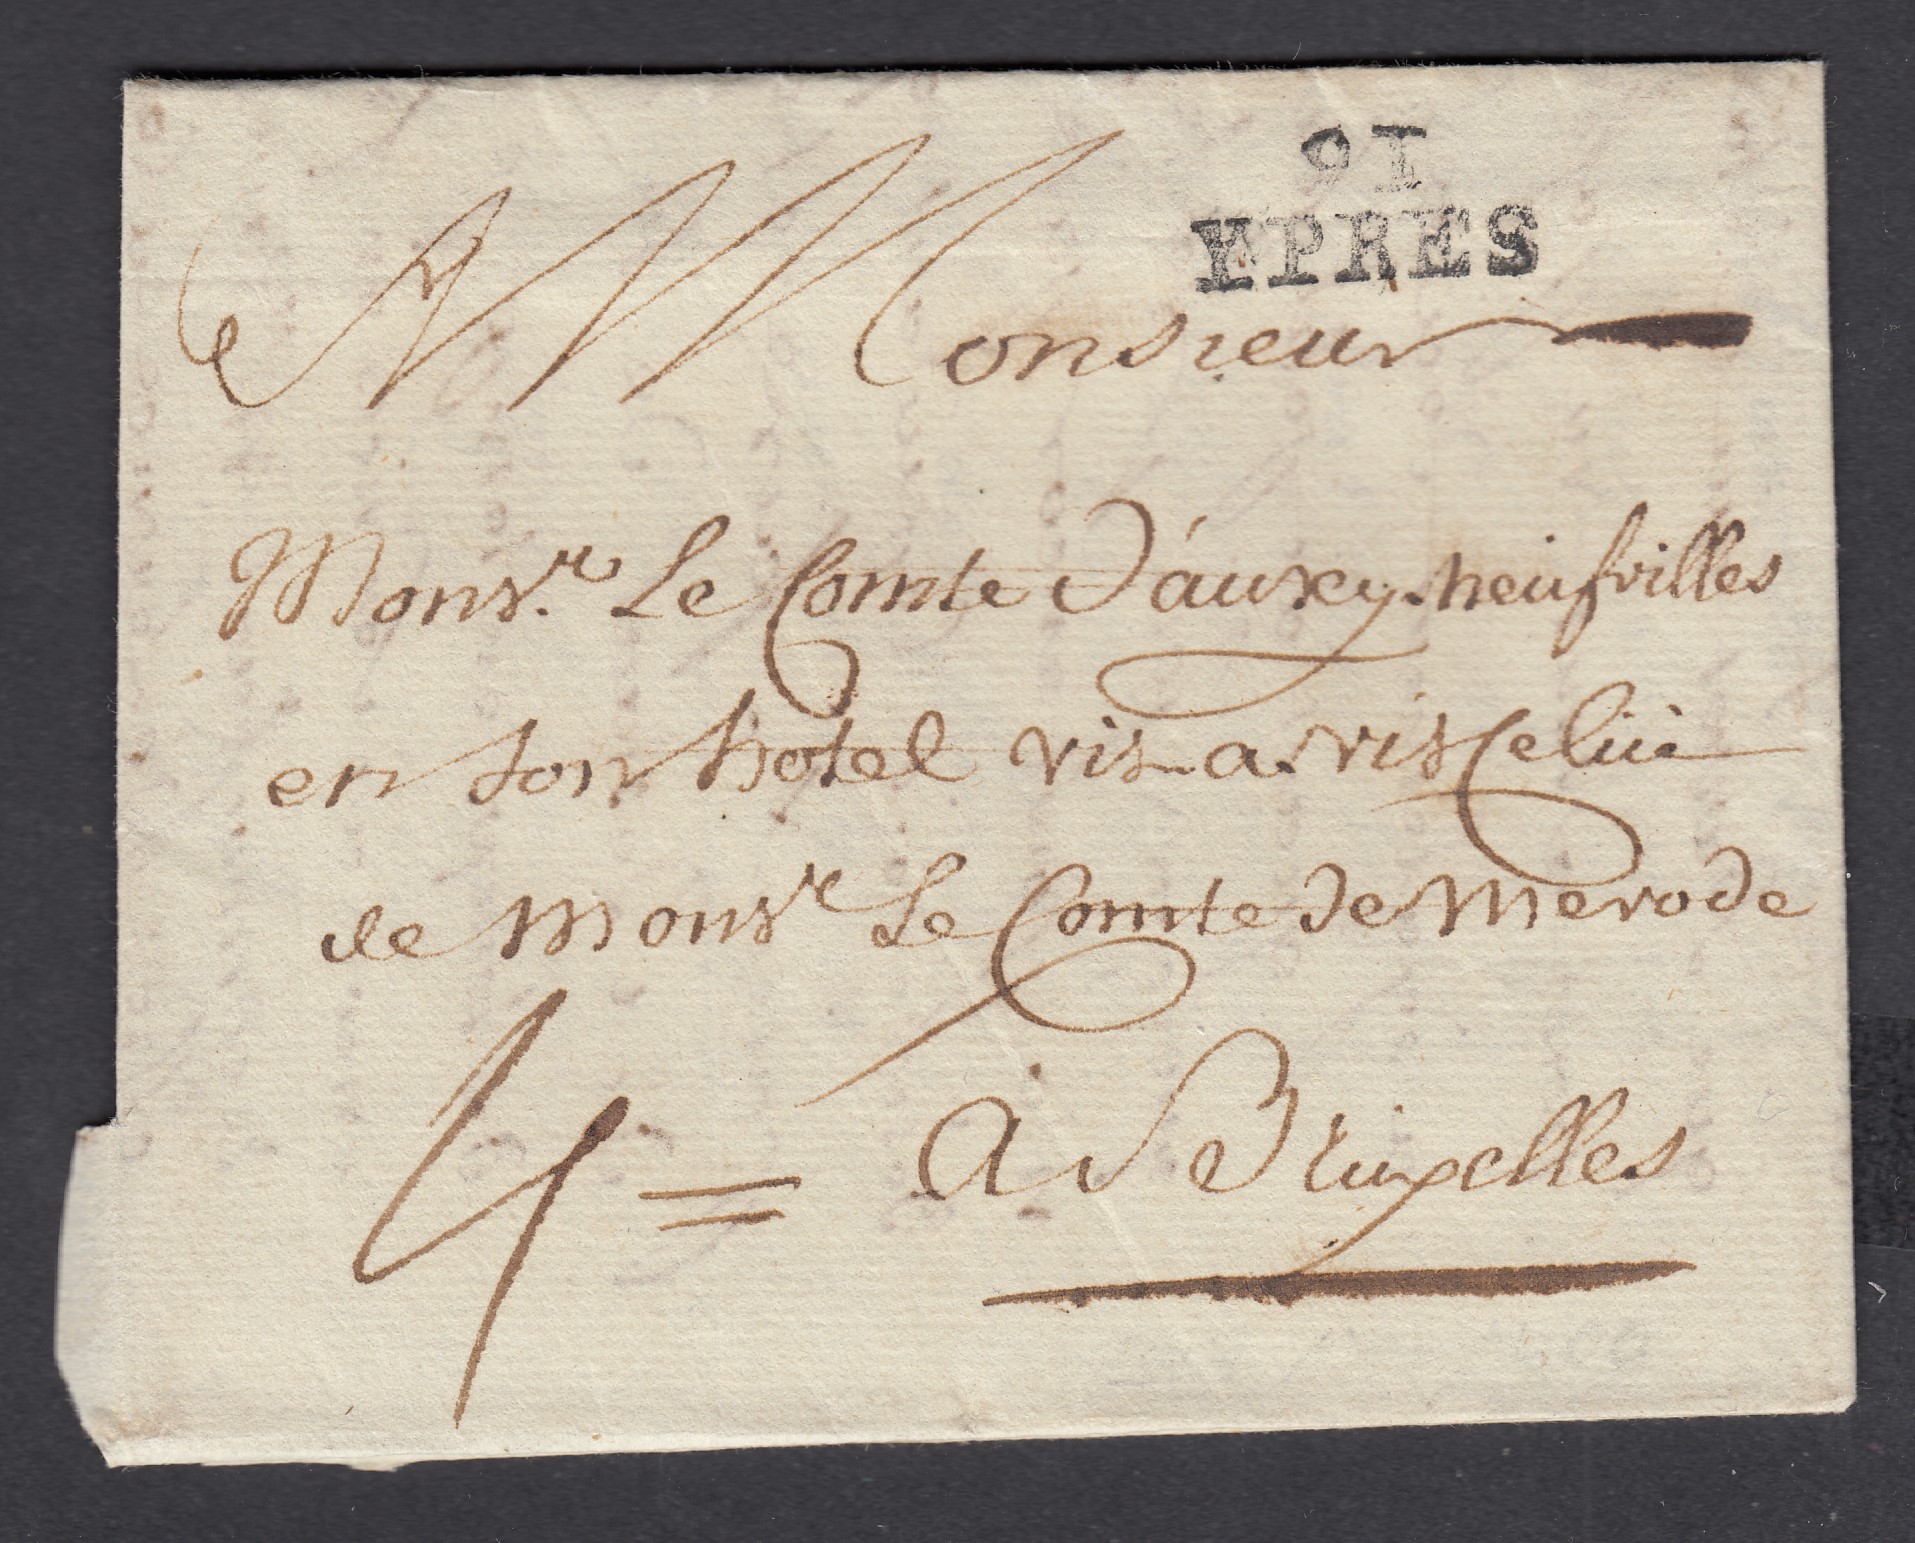 91
YPRES
Monsieur
Monsr. Le Comte D'auxy-neufvilles
en son hotel vis-a-vis Celüi
de Monsr Le Comte de Merode
4 = A Bruxelles